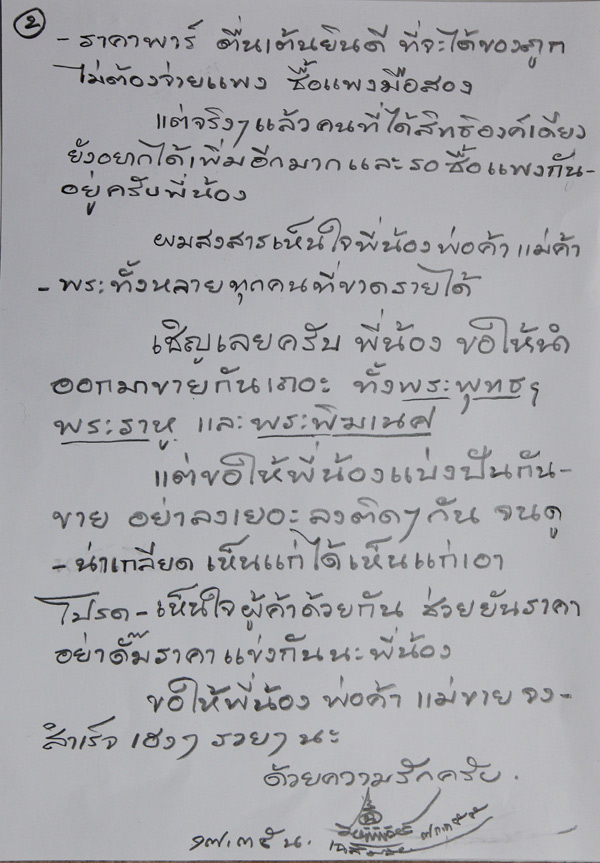 ๒
- ราคาพาร์ ตื่นเต้นยินดี ที่จะได้ของถูก
ไม่ต้องจ่ายแพง ซื้อแพงมือสอง
แต่จริงๆแล้วคนที่ได้สิทธิองค์เดียว
ยังอยากได้เพิ่มอีกมากและรอซื้อแพงกัน-
อยู่ครับพี่น้อง
ผมสงสารเห็นใจพี่น้องพ่อค้า แม่ค้า
- พระทั้งหลายทุกคนที่ขาดรายได้
เชิญเลยครับ พี่น้อง ขอให้นำ
ออกมาขายกันเถอะ ทั้งพระพุทธฯ
พระราหู และพระพิฆเนศ
แต่ขอให้พี่น้องแบ่งปันกัน-
ขาย อย่าลงเยอะลงติดๆกัน จนดู
- น่าเกลียด เห็นแก่ได้เห็นแก่เอา
โปรด-เห็นใจผู้ค้าด้วยกัน ช่วยยันราคา
อย่าดั๊มราคาแข่งกันนะพี่น้อง
ขอให้พี่น้อง พ่อค้า แม่ขาย จง-
สำเร็จ เฮงๆ รวยๆ นะ
ด้วยความรักครับ.